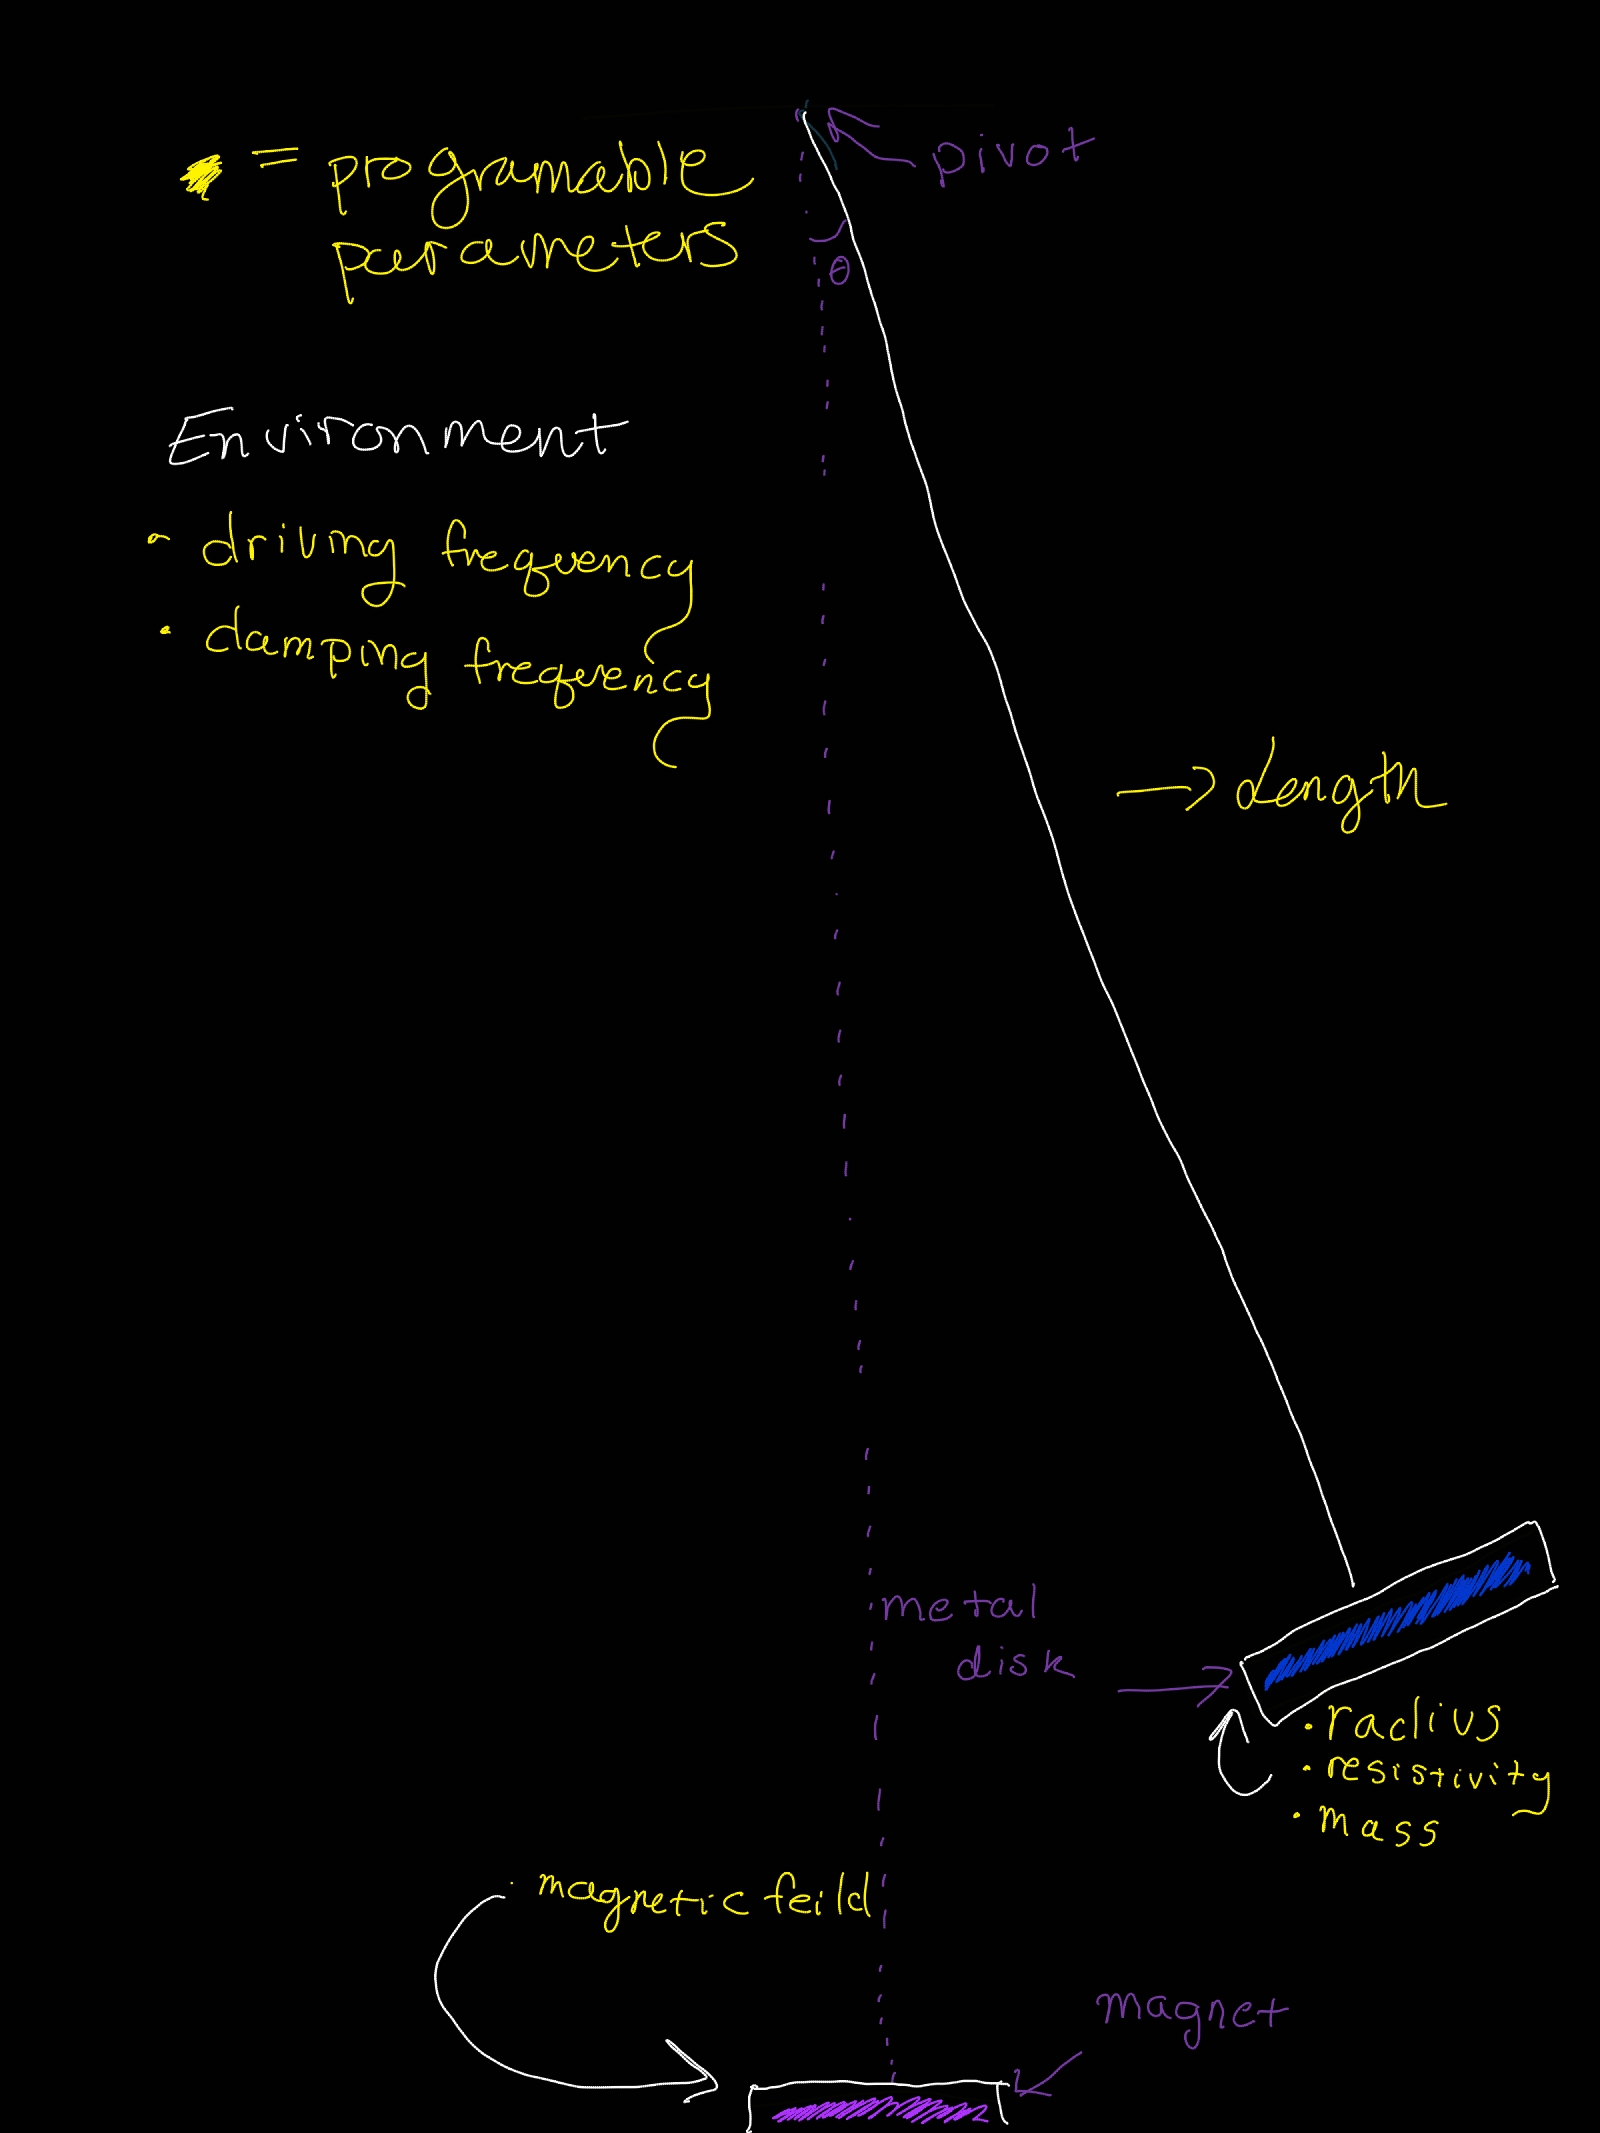 = programable
parameters
pivot
θ
Environment
• driving frequency
• damping frequency
→ Length
metal
disk
• radius
• resistivity
• mass
• magnetic feild
magnet